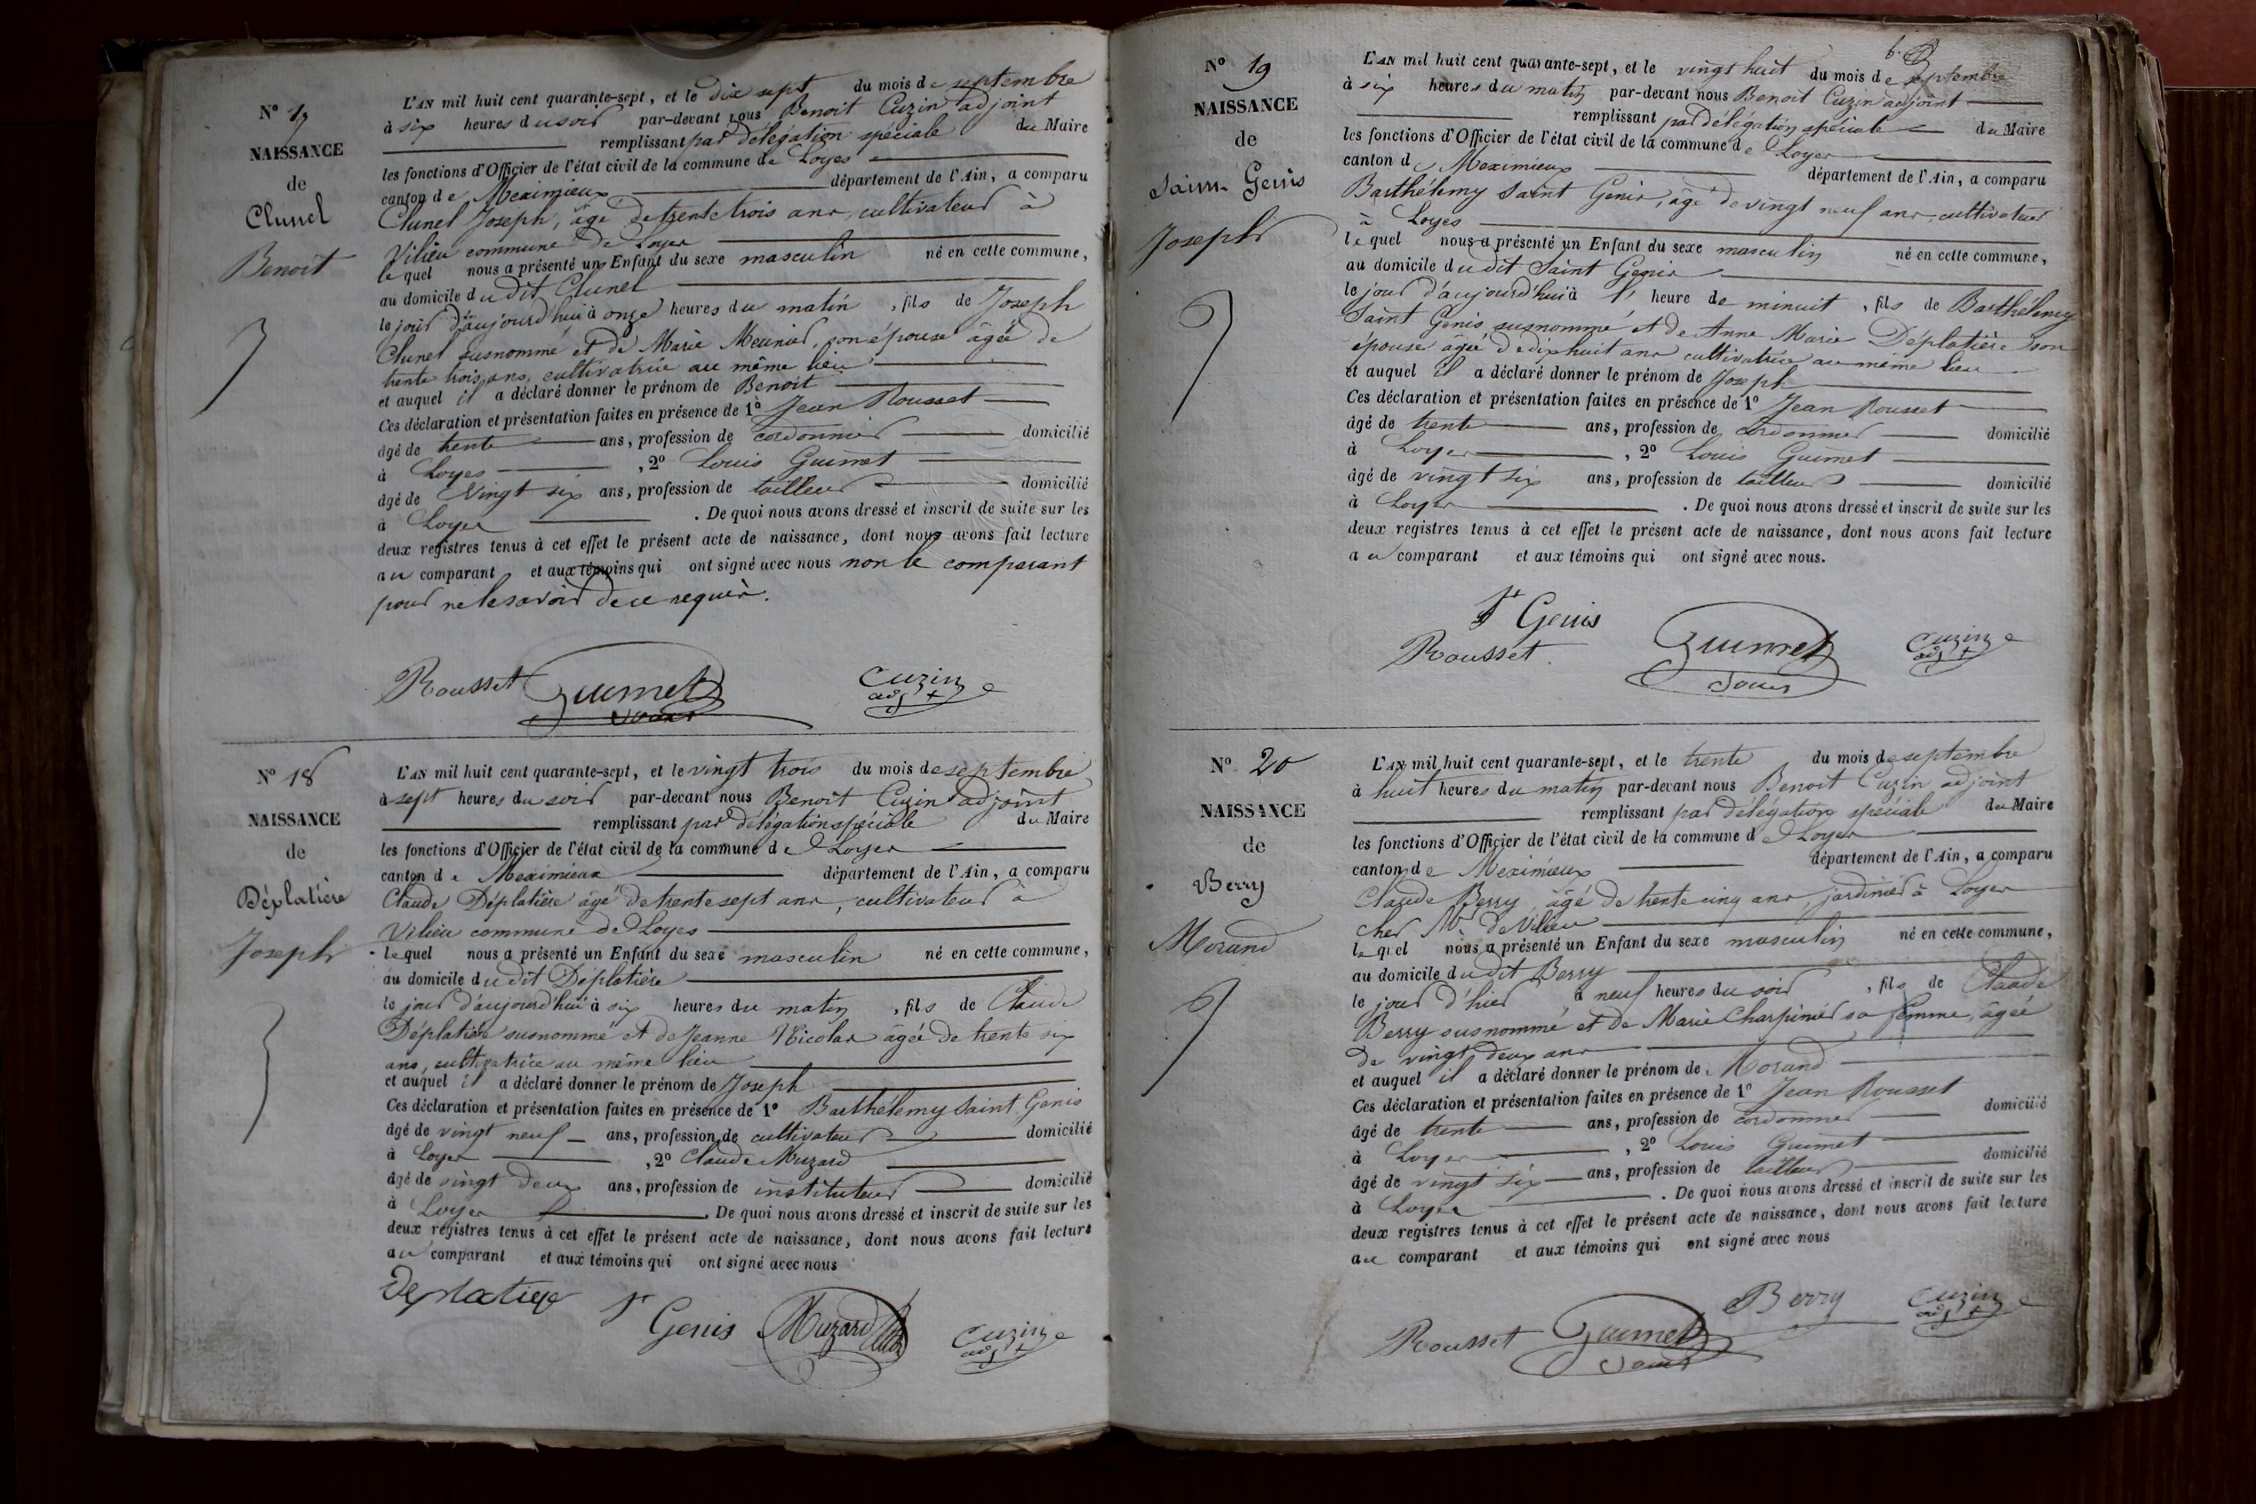 N° 17
NAISSANCE
de
Clunel
Benoit
L'AN mil huit cent quarante-sept, et le dix sept du mois de septembre
à six heures du soir par-devant nous Benoit Cuzin adjoint
remplissant par délégation spéciale du Maire
les fonctions d'Officier de l'état civil de la commune de Loyes
canton de Meximieux département de l'Ain, a comparu
Clunel Joseph, âgé de trente trois ans, cultivateur à
Vilieu commune de Loyes
lequel nous a présenté un Enfant du sexe masculin né en cette commune,
au domicile du dit Clunel
le jour d'aujourd'hui à onze heures du matin, fils de Joseph
Clunel susnommé et de Marie Meunier, son épouse âgée de
trente trois ans, cultivatrice au même lieu
et auquel il a déclaré donner le prénom de Benoit
Ces déclaration et présentation faites en présence de 1° Jean Rousset
âgé de trente ans, profession de cordonnier domicilié
à Loyes, 2° Louis Guimet
âgé de Vingt six ans, profession de tailleur domicilié
à Loyes. De quoi nous avons dressé et inscrit de suite sur les
deux registres tenus à cet effet le présent acte de naissance, dont nous avons fait lecture
au comparant et aux témoins qui ont signé avec nous non le comparant
pour ne le savoir de ce requis.
Rousset Guimet Cuzin
Louis adjt
N° 18
NAISSANCE
de
Déplatière
Joseph
L'AN mil huit cent quarante-sept, et le vingt trois du mois de septembre
à sept heures du soir par-devant nous Benoit Cuzin adjoint
remplissant par délégation spéciale du Maire
les fonctions d'Officier de l'état civil de la commune de Loyes
canton de Meximieux département de l'Ain, a comparu
Claude Déplatière âgé de trente sept ans, cultivateur à
Vilieu commune de Loyes
lequel nous a présenté un Enfant du sexe masculin né en cette commune,
au domicile du dit Déplatière
le jour d'aujourd'hui à six heures du matin, fils de Claude
Déplatière susnommé et de Jeanne Nicolas âgée de trente six
ans, cultivatrice au même lieu
et auquel il a déclaré donner le prénom de Joseph
Ces déclaration et présentation faites en présence de 1° Barthélemy Saint Genis
âgé de vingt neuf ans, profession de cultivateur domicilié
à Loyes, 2° Claude Muzard
âgé de vingt deux ans, profession de instituteur domicilié
à Loyes. De quoi nous avons dressé et inscrit de suite sur les
deux registres tenus à cet effet le présent acte de naissance, dont nous avons fait lecture
au comparant et aux témoins qui ont signé avec nous
Deplatiere St Genis Muzard Cuzin
adjt
N° 19
NAISSANCE
de
Saint Genis
Joseph
L'AN mil huit cent quarante-sept, et le vingt huit du mois de septembre
à six heures du matin par-devant nous Benoit Cuzin adjoint
remplissant par délégation spéciale du Maire
les fonctions d'Officier de l'état civil de la commune de Loyes
canton de Meximieux département de l'Ain, a comparu
Barthélemy Saint Genis, âgé de vingt neuf ans cultivateur
à Loyes
lequel nous a présenté un Enfant du sexe masculin né en cette commune,
au domicile du dit Saint Genis
le jour d'aujourd'hui à l' heure de minuit, fils de Barthélemy
Saint Genis susnommé et de Anne Marie Déplatière son
épouse âgée de dix huit ans cultivatrice au même lieu
et auquel il a déclaré donner le prénom de Joseph
Ces déclaration et présentation faites en présence de 1° Jean Rousset
âgé de trente ans, profession de cordonnier domicilié
à Loyes, 2° Louis Guimet
âgé de vingt six ans, profession de tailleur domicilié
à Loyes. De quoi nous avons dressé et inscrit de suite sur les
deux registres tenus à cet effet le présent acte de naissance, dont nous avons fait lecture
au comparant et aux témoins qui ont signé avec nous.
St Genis
Rousset Guimet Cuzin
Louis adjt
N° 20
NAISSANCE
de
Berry
Morand
L'AN mil huit cent quarante-sept, et le trente du mois de septembre
à huit heures du matin par-devant nous Benoit Cuzin adjoint
remplissant par délégation spéciale du Maire
les fonctions d'Officier de l'état civil de la commune de Loyes
canton de Meximieux département de l'Ain, a comparu
Claude Berry, âgé de trente cinq ans, jardinier à Loyes
chez Mr de Vilieu
lequel nous a présenté un Enfant du sexe masculin né en cette commune,
au domicile du dit Berry
le jour d'hier à neuf heures du soir, fils de Claude
Berry susnommé et de Marie Charpinier sa femme, âgée
de vingt deux ans
et auquel il a déclaré donner le prénom de Morand
Ces déclaration et présentation faites en présence de 1° Jean Rousset
âgé de trente ans, profession de cordonnier domicilié
à Loyes, 2° Louis Guimet
âgé de vingt six ans, profession de tailleur domicilié
à Loyes. De quoi nous avons dressé et inscrit de suite sur les
deux registres tenus à cet effet le présent acte de naissance, dont nous avons fait lecture
au comparant et aux témoins qui ont signé avec nous
Berry Cuzin
Rousset Guimet adjt
Louis